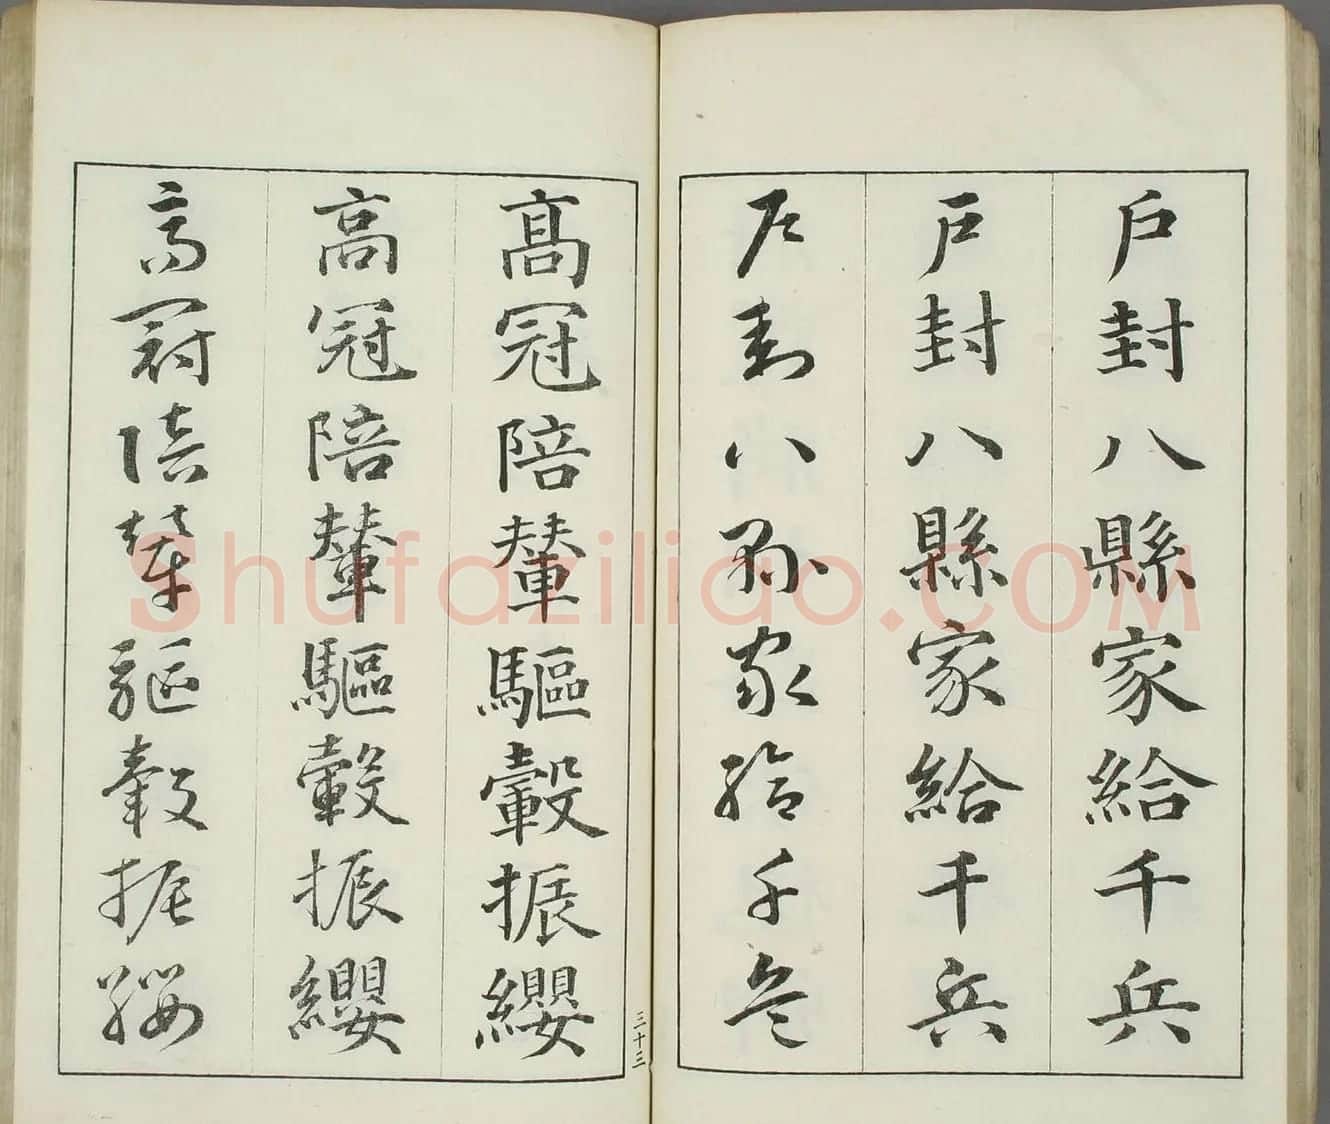 戶封八縣家給千兵
戶封八縣家給千兵
戶封八縣家給千兵
高冠陪輦驅轂振纓
高冠陪輦驅轂振纓
高冠陪輦驅轂振纓
三十三
Shufaziliao.COM